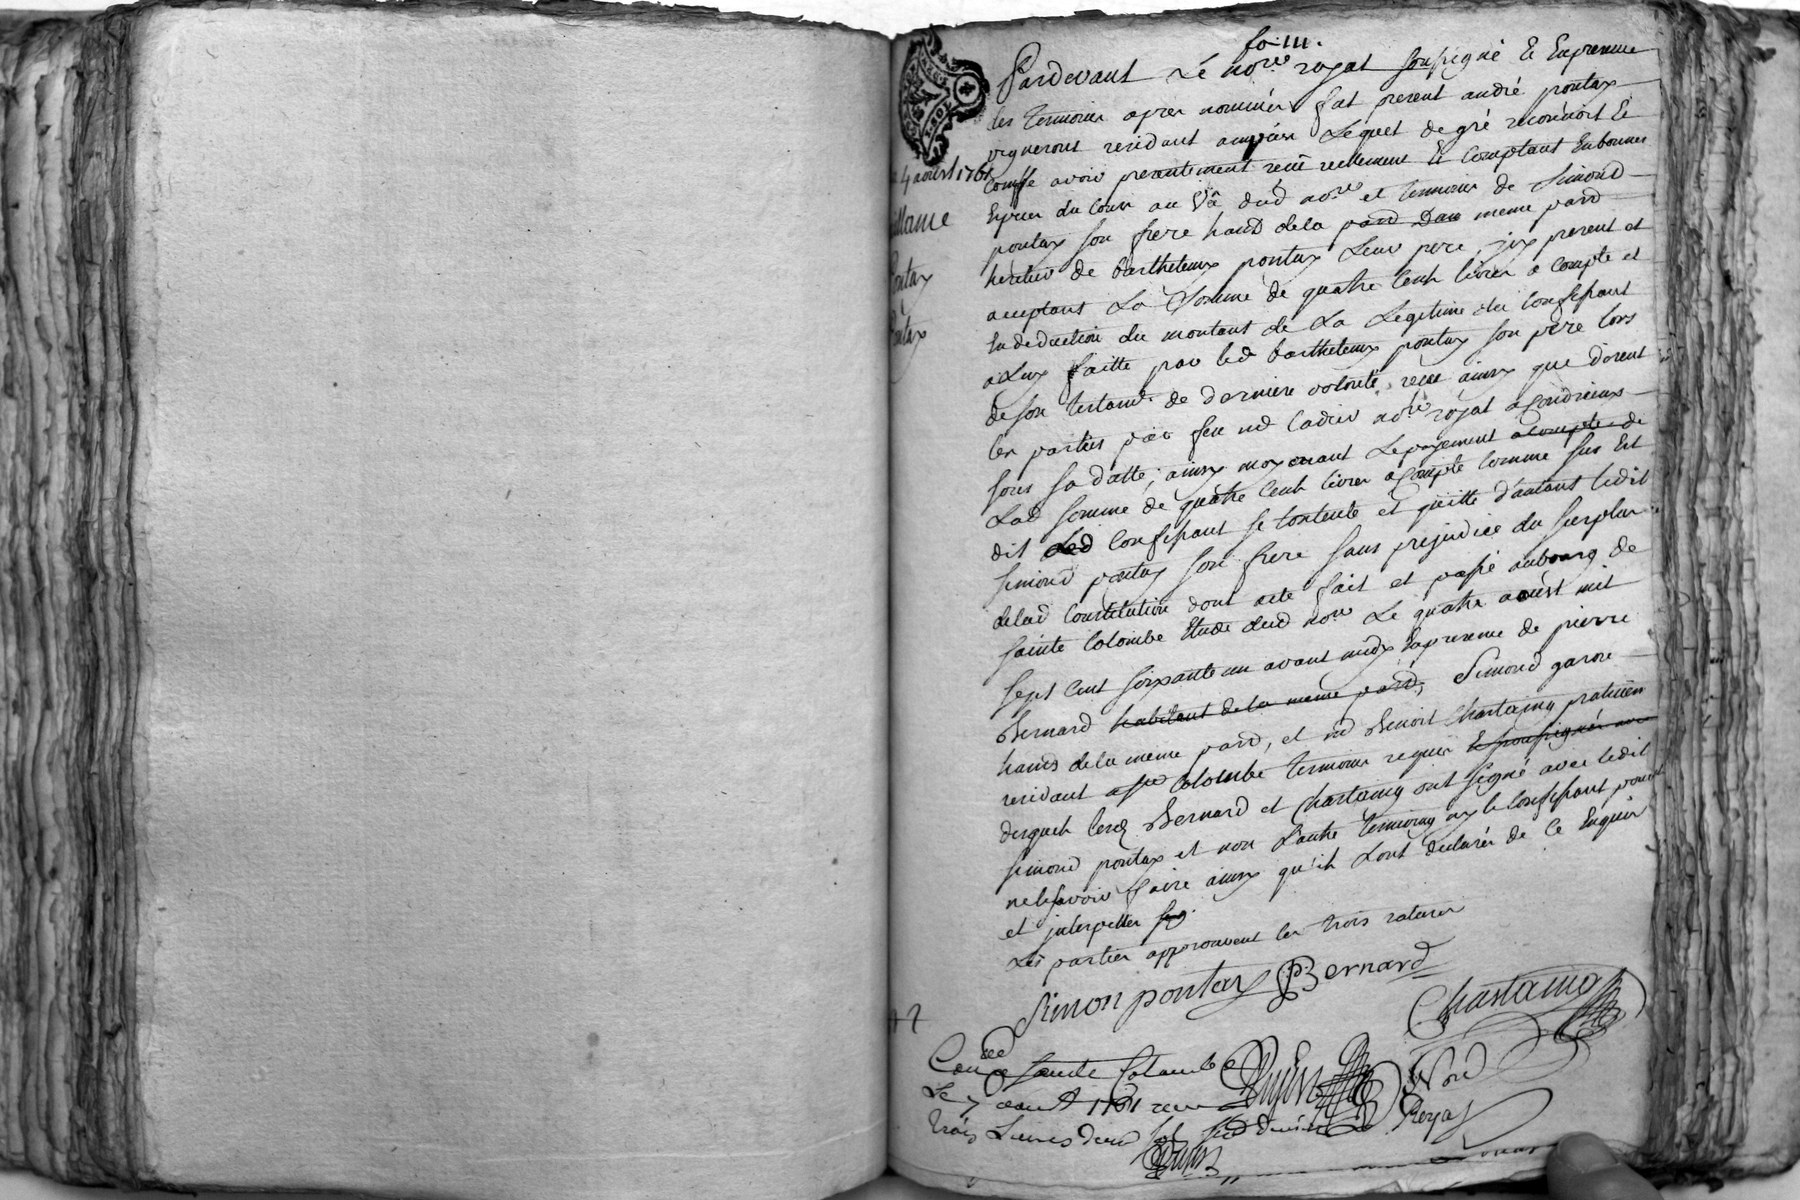 fo. 111.
Pardevant Le no.re royal soussigné Et En presence
des temoins apres nommés fut present andré pontax
vigneront residant Lequel de gré reconnoit Et
confesse avoir presentement reçû reellement Et Comptant En bonnes
Especes du Cours au Vû dud no.re et temoins de Simond
pontax son frere habt de la par.d D'au meme par.d
heritier de barthelemy pontax Leur pere, icy present et
acceptant La Somme de quatre Cent livres a compte et
En deduction du montant de La Legitime du Confessant
a Luy faitte par led barthelemy pontax son pere lors
de son testam.t de derniere volonté, reçû ainsy que disent
les parties par feu me Cadier no.re royal a Condrieux
sous sa datte; ainsy moyenant Le payement a compte de
Lad somme de quatre Cent livres a Compte Comme sus Est
dit Led Confessant se Contente et quitte d'autant ledit
Simond pontax son frere sans prejudice du surplus
de lad Constitution dont acte fait et passé au bourg de
sainte Colombe Etude dud no.re Le quatre aoust mil
sept Cent soixante un avant midy En presence de pierre
Bernard habitant de la meme par.d, Simond garon
habt de la meme par.d, et me Benoit Chastaing praticien
residant a ste Colombe temoins requis Et soussignés avec
desquels lesd Bernard et Chastaing ont signé avec ledit
Simond pontax et non L'autre temoing ny le Confessant pour
ne le sçavoir faire ainsy qu'ils L'ont declarés de Ce Enquis
et interpellés
Les parties approuvent les trois ratures
4 aoust 1761
Pontax
a
Pontax
Simon pontax PBernard
Chastaing
Con.lé a Sainte Colombe
Le 7 aoust 1761 recu
trois Livres
Royal